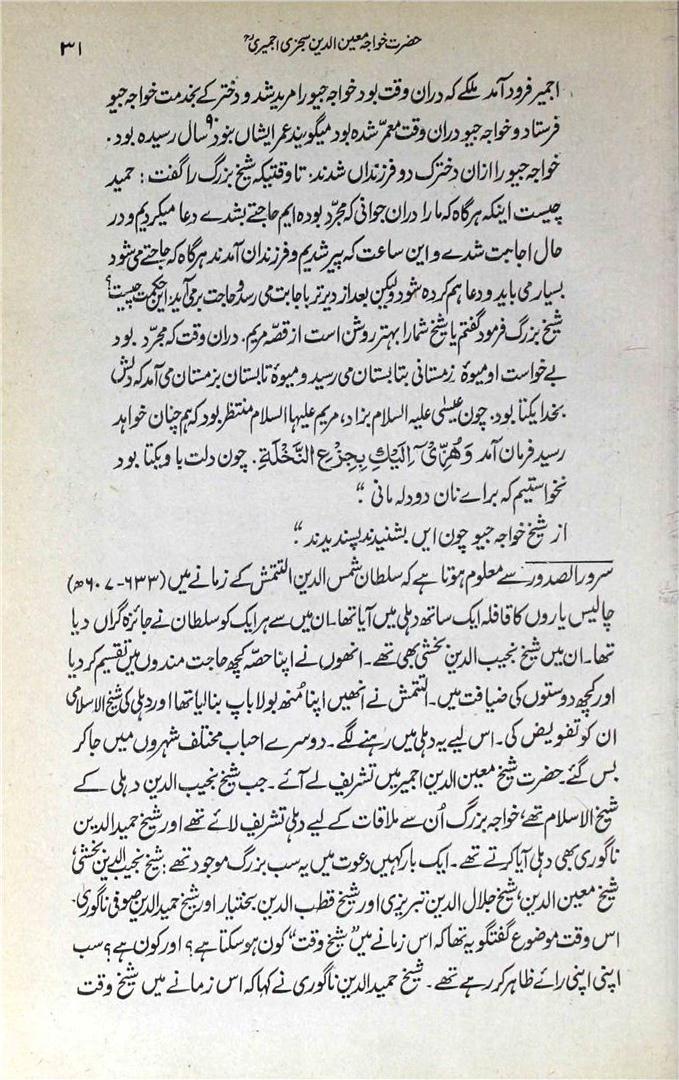 حضرت خواجہ معین الدین سجزی اجمیریؒ
۳۱
اجمیر فرود آمد ملکے کہ دران وقت بود خواجہ جیو را مرید شد و دختر کے بخدمت خواجہ جیو
فرستاد و خواجہ جیو دران وقت معمّر شدہ بود میگویند عمر ایشاں بنود ۹۰ سال رسیدہ بود۔
خواجہ جیو را ازان دخترک دو فرزنداں شدند: تا وقتیکہ شیخ بزرگ را گفت : حمید
چیست اینکہ ہر گاہ کہ ما را دران جوانی کہ مجرّد بودہ ایم حاجتے بشدے دعا میکردیم و در
حال اجابت شدے و این ساعت کہ پیر شدیم و فرزندان آمدند ہر گاہ کہ حاجتے می شود
بسیار می باید و دعا ہم کردہ شود ولیکن بعد از دیر تر باجابت می رسد و حاجت برمی آید: این حکمت چیست؟
شیخ بزرگ فرمود گفتم یا شیخ شما را بہتر روشن است از قصّہ مریم۔ دران وقت کہ مجرّد بود
بے خواست او میوۂ زمستانی بتابستان می رسید و میوۂ تابستان بزمستان می آمد کہ دلش
بخدا یکتا بود۔ چون عیسیٰ علیہ السلام بزاد، مریم علیہا السلام منتظر بود کہ ہم چنان خواہد
رسید فرمان آمد وَهُزِّىْٓ اِلَيْكِ بِجِزْعِ النَّخْلَةِ. چون دلت با و یکتا بود
نخواستیم کہ براے نان دو دلہ مانی۔"
از شیخ خواجہ جیو چون ایں بشنیدند پسندیدند۔"
سرور الصدور سے معلوم ہوتا ہے کہ سلطان شمس الدین التتمش کے زمانے میں (۶۳۳-۶۰۷ھ)
چالیس یاروں کا قافلہ ایک ساتھ دہلی میں آیا تھا۔ ان میں سے ہر ایک کو سلطان نے جائزہ گراں دیا
تھا۔ ان میں شیخ نجیب الدین نخشبی بھی تھے۔ انھوں نے اپنا حصّہ کچھ حاجت مندوں میں تقسیم کر دیا
اور کچھ دوستوں کی ضیافت میں۔ التتمش نے انھیں اپنا مُنھ بولا باپ بنا لیا تھا اور دہلی کی شیخ الاسلامی
ان کو تفویض کی۔ اس لیے یہ دہلی میں رہنے لگے۔ دوسرے احباب مختلف شہروں میں جا کر
بس گئے۔ حضرت شیخ معین الدین اجمیر میں تشریف لے آئے۔ جب شیخ نجیب الدین دہلی کے
شیخ الاسلام تھے، خواجہ بزرگ اُن سے ملاقات کے لیے دہلی تشریف لائے تھے اور شیخ حمید الدین
ناگوری بھی دہلی آیا کرتے تھے۔ ایک بار کہیں دعوت میں یہ سب بزرگ موجود تھے : شیخ نجیب الدین نخشبی،
شیخ معین الدین، شیخ جلال الدین تبریزی اور شیخ قطب الدین بختیار اور شیخ حمید الدین صوفی ناگوری۔
اس وقت موضوع گفتگو یہ تھا کہ اس زمانے میں "شیخ وقت" کون ہو سکتا ہے؟ اور کون ہے؟ سب
اپنی اپنی رائے ظاہر کر رہے تھے۔ شیخ حمید الدین ناگوری نے کہا کہ اس زمانے میں شیخ وقت